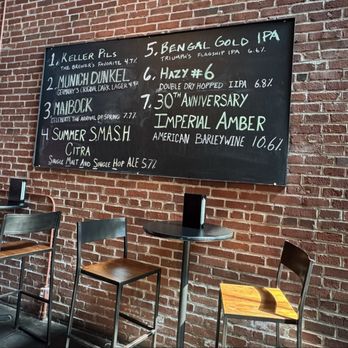 1. KELLER PILS
THE BREWER'S FAVORITE 4.7%
2. MUNICH DUNKEL
GERMANY'S ORIGINAL DARK LAGER 4.9%
3 MAIBOCK
CELEBRATE THE ARRIVAL OF SPRING 7.7%
4 SUMMER SMASH
CITRA
SINGLE MALT AND SINGLE HOP ALE 5.7%
5. BENGAL GOLD IPA
TRIUMPH'S FLAGSHIP IPA 6.6%
6. HAZY #6
DOUBLE DRY HOPPED IIPA 6.8%
7. 30TH ANNIVERSARY
IMPERIAL AMBER
AMERICAN BARLEYWINE 10.6%